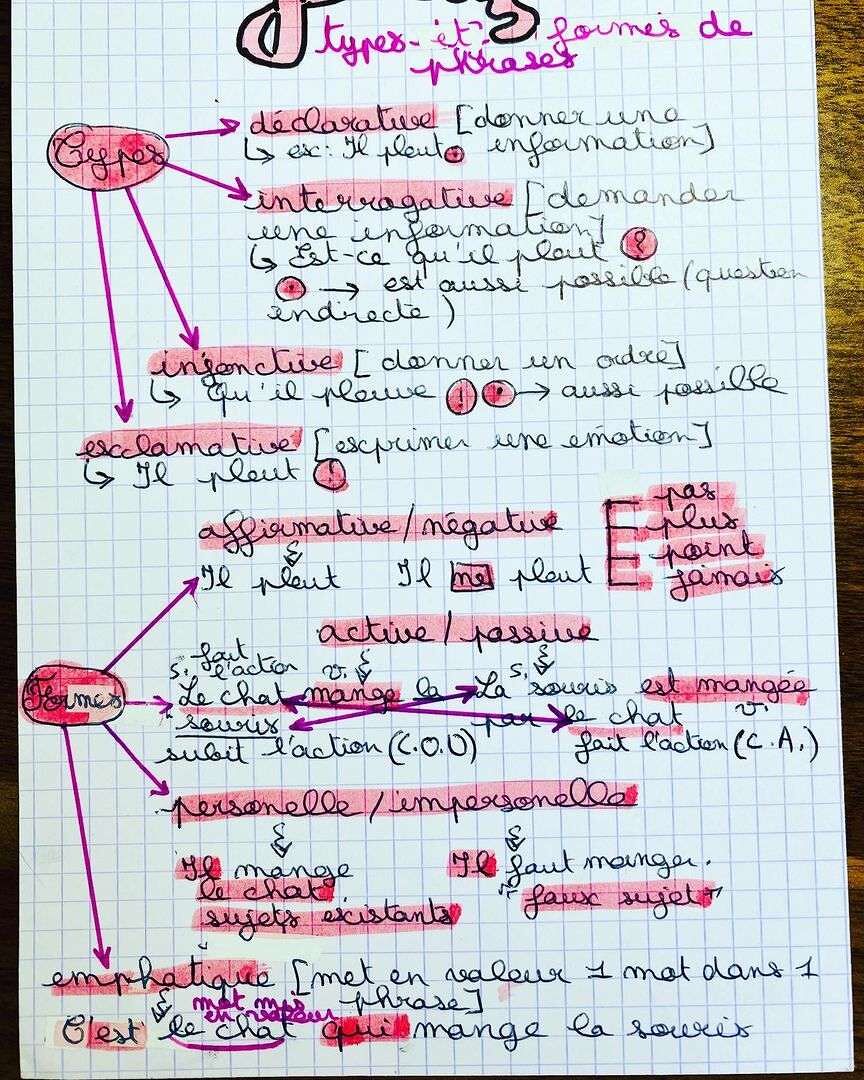 types et formes de
phrases
Types
déclarative [donner une
↳ ex: Il pleut. information]
interrogative [demander
une information]
↳ Est-ce qu'il pleut ?
. → est aussi possible (question
indirecte)
injonctive [donner un ordre]
↳ Qu'il pleuve ! . → aussi possible
exclamative [exprimer une émotion]
↳ Il pleut !
affirmative / négative
Il pleut Il ne pleut
pas
plus
point
jamais
Formes
active / passive
fait
s. l'action v. s.
Le chat mange la La souris est mangée
souris par le chat v.
subit l'action (C.O.D) fait l'action (C.A.)
personelle / impersonelle
Il mange Il faut manger.
le chat "faux sujet"
sujets existants
emphatique [met en valeur 1 mot dans 1
mot mis phrase]
en valeur
C'est le chat qui mange la souris